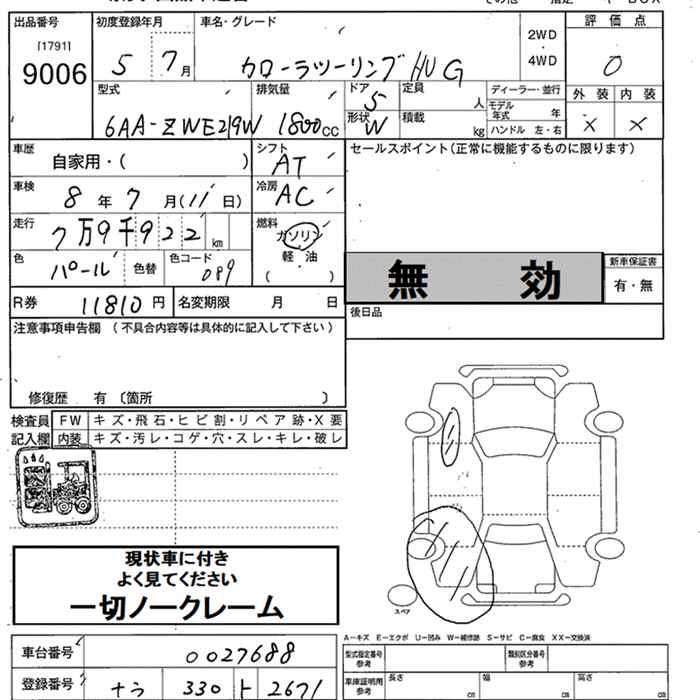 出品番号
[1791]
9006
初度登録年月
5 7月
車名・グレード
カローラツーリング HV G
2WD
・
4WD
評価点
0
型式
6AA-ZWE219W
排気量
1800cc
ドア
5
形状
W
定員
人
積載
kg
ディーラー・並行
モデル年式 年
ハンドル 左・右
外装 内装
× ×
車歴
自家用・( )
シフト
AT
セールスポイント(正常に機能するものに限ります)
車検
8年7月(11日)
冷房
AC
走行
7万9千922km
燃料
ガソリン
軽油
( )
色
パール
色替
色コード
089
無効
新車保証書
有・無
R券 11810円
名変期限 月 日
後日品
注意事項申告欄(不具合内容等は具体的に記入して下さい)
修復歴 有〔箇所 〕
検査員記入欄
FW キズ・飛石・ヒビ割・リペア跡・X要
内装 キズ・汚レ・コゲ・穴・スレ・キレ・破レ
現状車に付き
よく見てください
一切ノークレーム
スペア
A-キズ E-エクボ U-凹み W-補修跡 S-サビ C-腐食 XX-交換済
車台番号 0027688
型式指定番号
参考
類別区分番号
参考
登録番号 ナラ 330 ト 2671
車庫証明用
参考
長さ cm
幅 cm
高さ cm